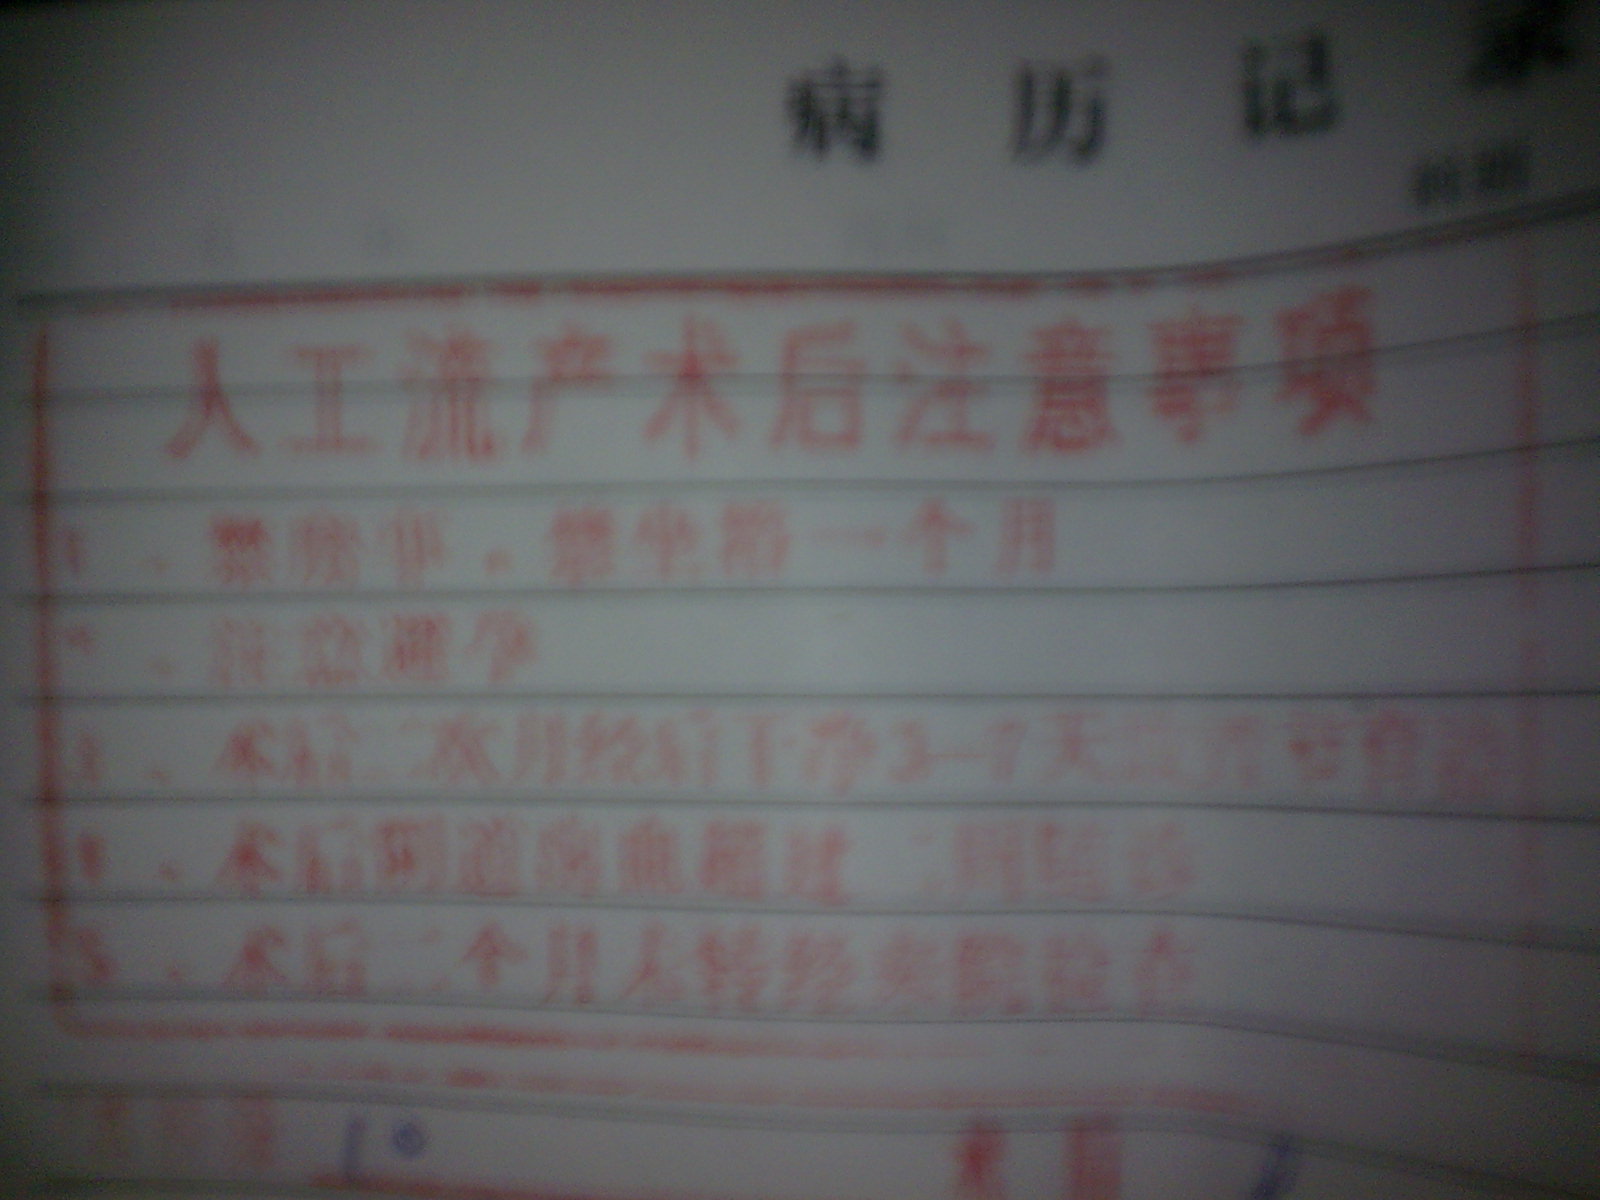 病历记录
人工流产术后注意事项
1、禁房事，禁坐浴一个月
2、注意避孕
3、术后二次月经后干净3—7天
4、术后阴道流血超过二周随诊
5、术后二个月无转经来院检查